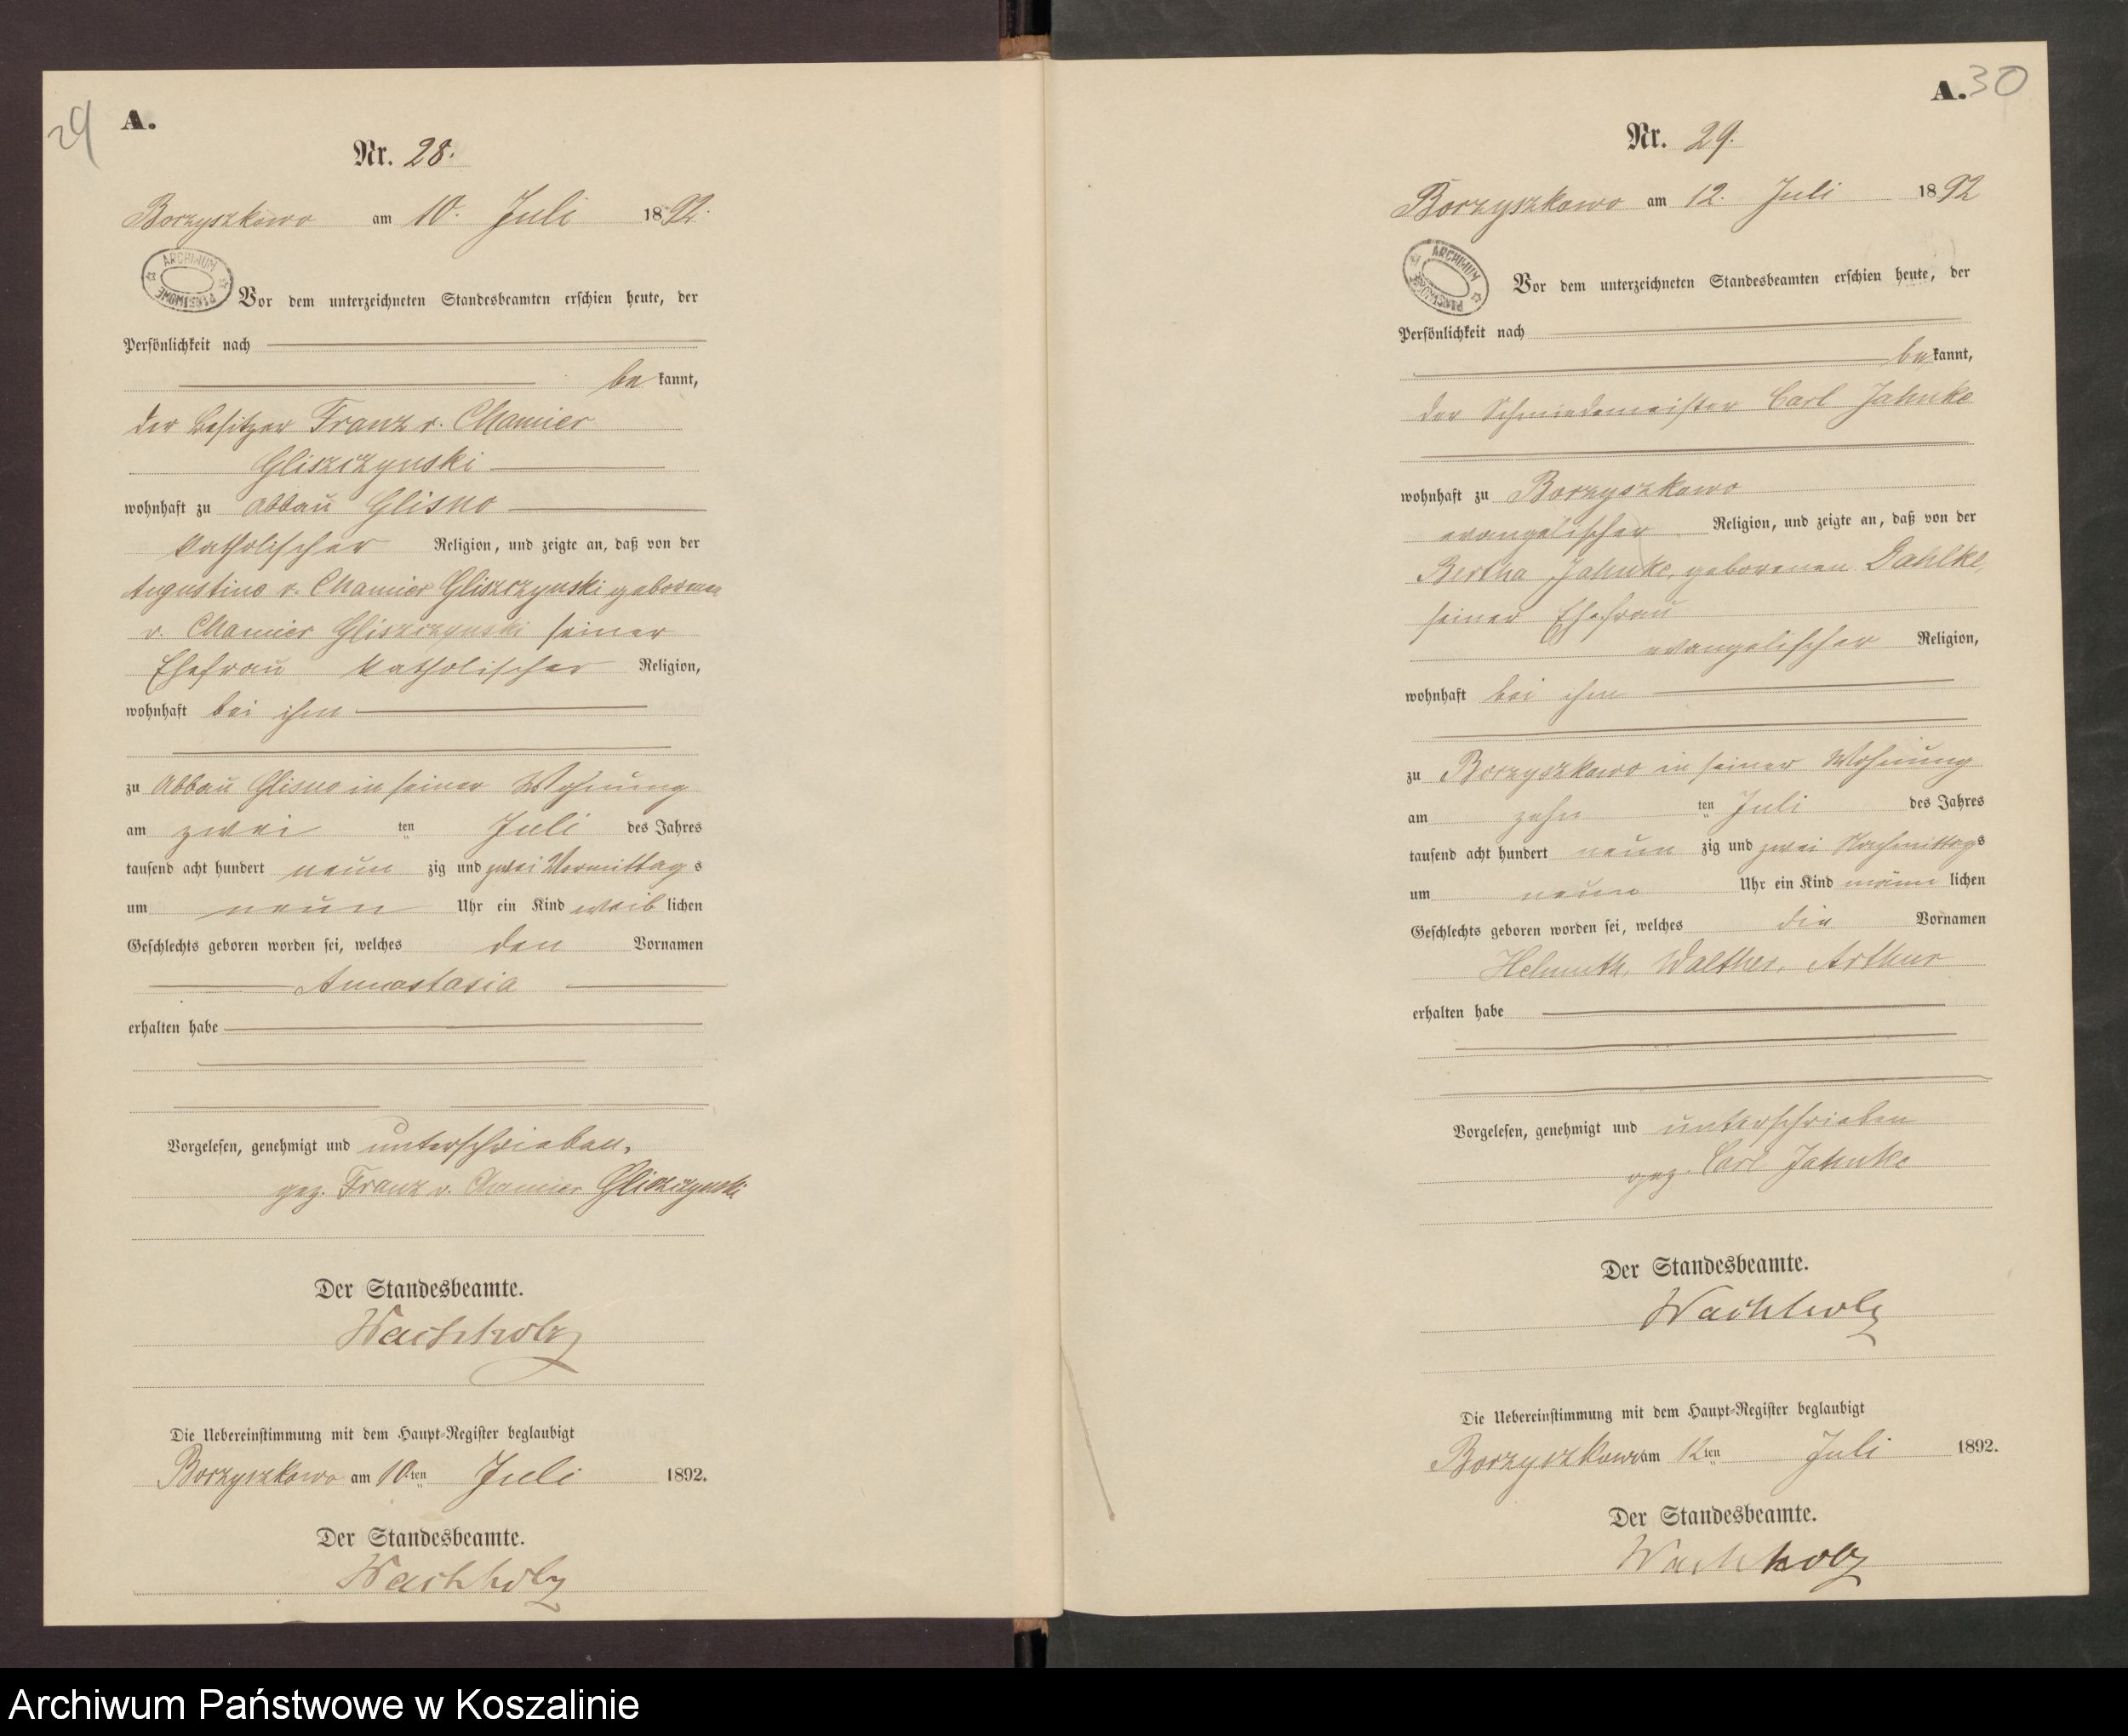 29
A.
Nr. 28.
Borzyszkowo am 10. Juli 1892.
ARCHIWUM PAŃSTWOWE
Vor dem unterzeichneten Standesbeamten erschien heute, der
Persönlichkeit nach
be kannt,
der Besitzer Franz v. Chamier
Gliszczynski
wohnhaft zu Abbau Glisno
katholischer Religion, und zeigte an, daß von der
Augustine v. Chamier Gliszczynski geborenen
v. Chamier Gliszczynski seiner
Ehefrau katholischer Religion,
wohnhaft bei ihm
zu Abbau Glisno in seiner Wohnung
am zwei ten Juli des Jahres
tausend acht hundert neun zig und zwei Vormittag s
um neun Uhr ein Kind weib lichen
Geschlechts geboren worden sei, welches den Vornamen
Annastasia
erhalten habe
Vorgelesen, genehmigt und unterschrieben.
gez. Franz v. Chamier Gliszczynski
Der Standesbeamte.
Wachholz
Die Uebereinstimmung mit dem Haupt-Register beglaubigt
Borzyszkowo am 10.ten Juli 1892.
Der Standesbeamte.
Wachholz
A. 30
Nr. 29.
Borzyszkowo am 12. Juli 1892
ARCHIWUM PAŃSTWOWE
Vor dem unterzeichneten Standesbeamten erschien heute, der
Persönlichkeit nach
be kannt,
der Schmiedemeister Carl Jahnke
wohnhaft zu Borzyszkowo
evangelischer Religion, und zeigte an, daß von der
Bertha Jahnke, geborenen Dahlke,
seiner Ehefrau
evangelischer Religion,
wohnhaft bei ihm
zu Borzyszkowo in seiner Wohnung
am zehn ten Juli des Jahres
tausend acht hundert neun zig und zwei Nachmittag s
um neun Uhr ein Kind männ lichen
Geschlechts geboren worden sei, welches die Vornamen
Helmuth, Walther, Arthur
erhalten habe
Vorgelesen, genehmigt und unterschrieben
gez. Carl Jahnke
Der Standesbeamte.
Wachholz
Die Uebereinstimmung mit dem Haupt-Register beglaubigt
Borzyszkowo am 12ten Juli 1892.
Der Standesbeamte.
Wachholz
Archiwum Państwowe w Koszalinie